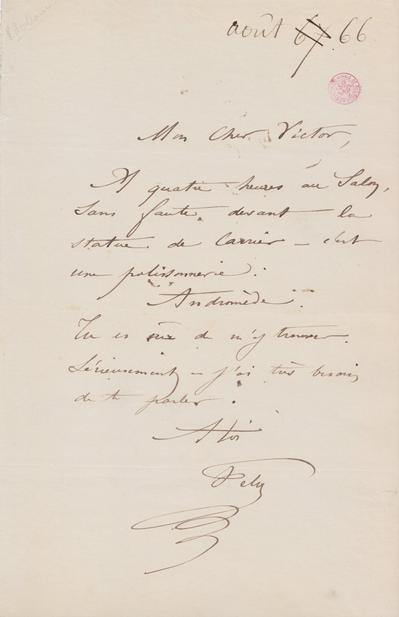 août 67 66
Mon Cher Victor,
A quatre heures au Salon,
sans faute, devant la
statue de Carrier – c'est
une polissonnerie :
Andromède.
Tu es sûr de m'y trouver.
Sérieusement – j'ai très besoin
de te parler.
A toi
Fély